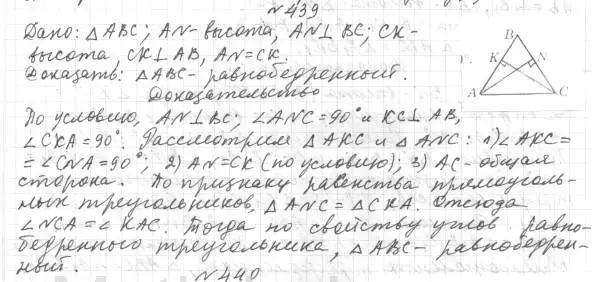 №439
Дано: △ABC; AN- высота, AN⊥BC; CK-
высота, CK⊥AB, AN=CK.
Доказать: △ABC- равнобедренный.
Доказательство
По условию, AN⊥BC; ∠ANC=90° и KC⊥AB,
∠CKA=90°. Рассмотрим △AKC и △ANC: 1)∠AKC=
=∠CNA=90°; 2) AN=CK (по условию); 3) AC- общая
сторона. По признаку равенства прямоуголь-
ных треугольников, △ANC=△CKA. Отсюда
∠NCA=∠KAC. Тогда по свойству углов равно-
бедренного треугольника, △ABC- равнобедрен-
ный.
№440
B
K
N
A
C